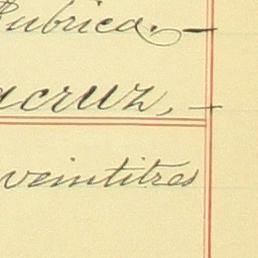 Rubrica.—
acruz,—
veintitres